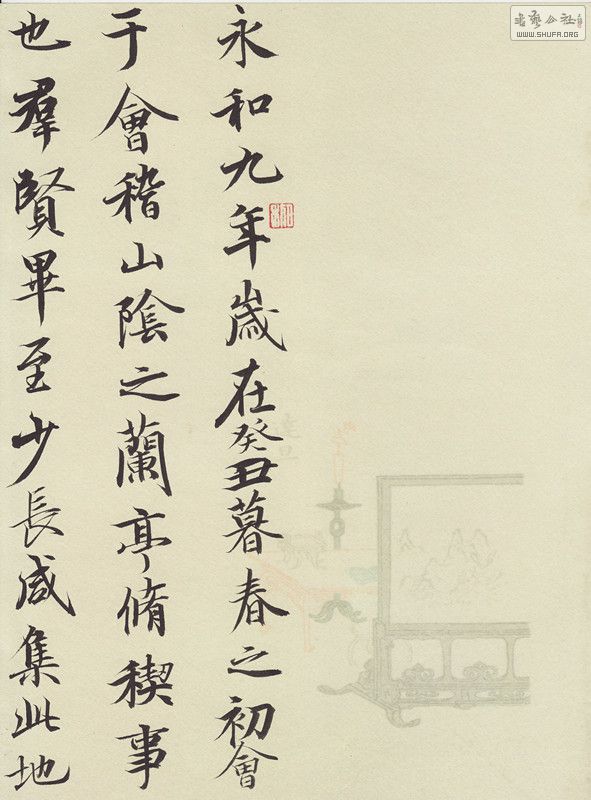 永和九年歲在癸丑暮春之初會
于會稽山陰之蘭亭脩稧事
也羣賢畢至少長咸集此地
書藝公社
WWW.SHUFA.ORG